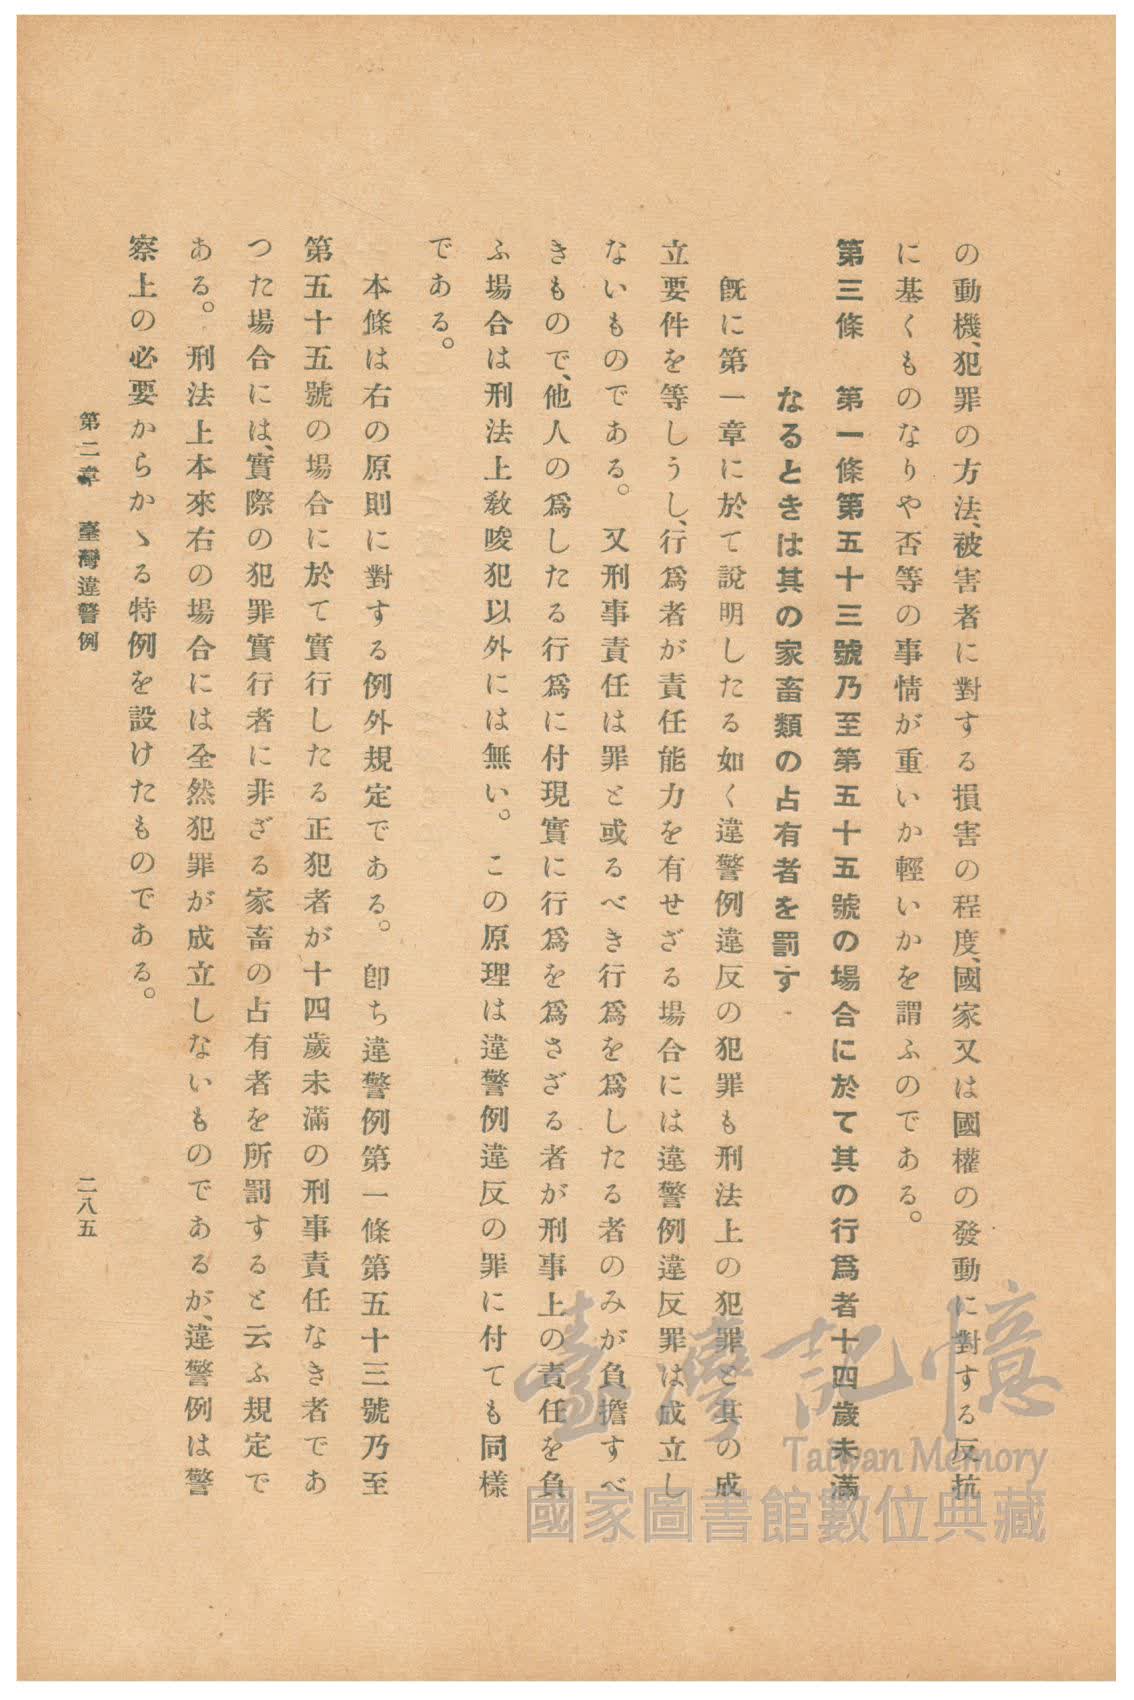 の動機、犯罪の方法、被害者に對する損害の程度、國家又は國權の發動に對する反抗
に基くものなりや否等の事情が重いか輕いかを謂ふのである。
第三條　第一條第五十三號乃至第五十五號の場合に於て其の行爲者十四歲未滿
なるときは其の家畜類の占有者を罰す
既に第一章に於て說明したる如く違警例違反の犯罪も刑法上の犯罪と其の成
立要件を等しうし、行爲者が責任能力を有せざる場合には違警例違反罪は成立し
ないものである。又刑事責任は罪と或るべき行爲を爲したる者のみが負擔すべ
きもので、他人の爲したる行爲に付現實に行爲を爲さざる者が刑事上の責任を負
ふ場合は刑法上敎唆犯以外には無い。この原理は違警例違反の罪に付ても同樣
である。
本條は右の原則に對する例外規定である。卽ち違警例第一條第五十三號乃至
第五十五號の場合に於て實行したる正犯者が十四歲未滿の刑事責任なき者であ
つた場合には、實際の犯罪實行者に非ざる家畜の占有者を所罰すると云ふ規定で
ある。刑法上本來右の場合には全然犯罪が成立しないものであるが、違警例は警
察上の必要からかゝる特例を設けたものである。
第二章　臺灣違警例
二八五
臺灣記憶
Taiwan Memory
國家圖書館數位典藏